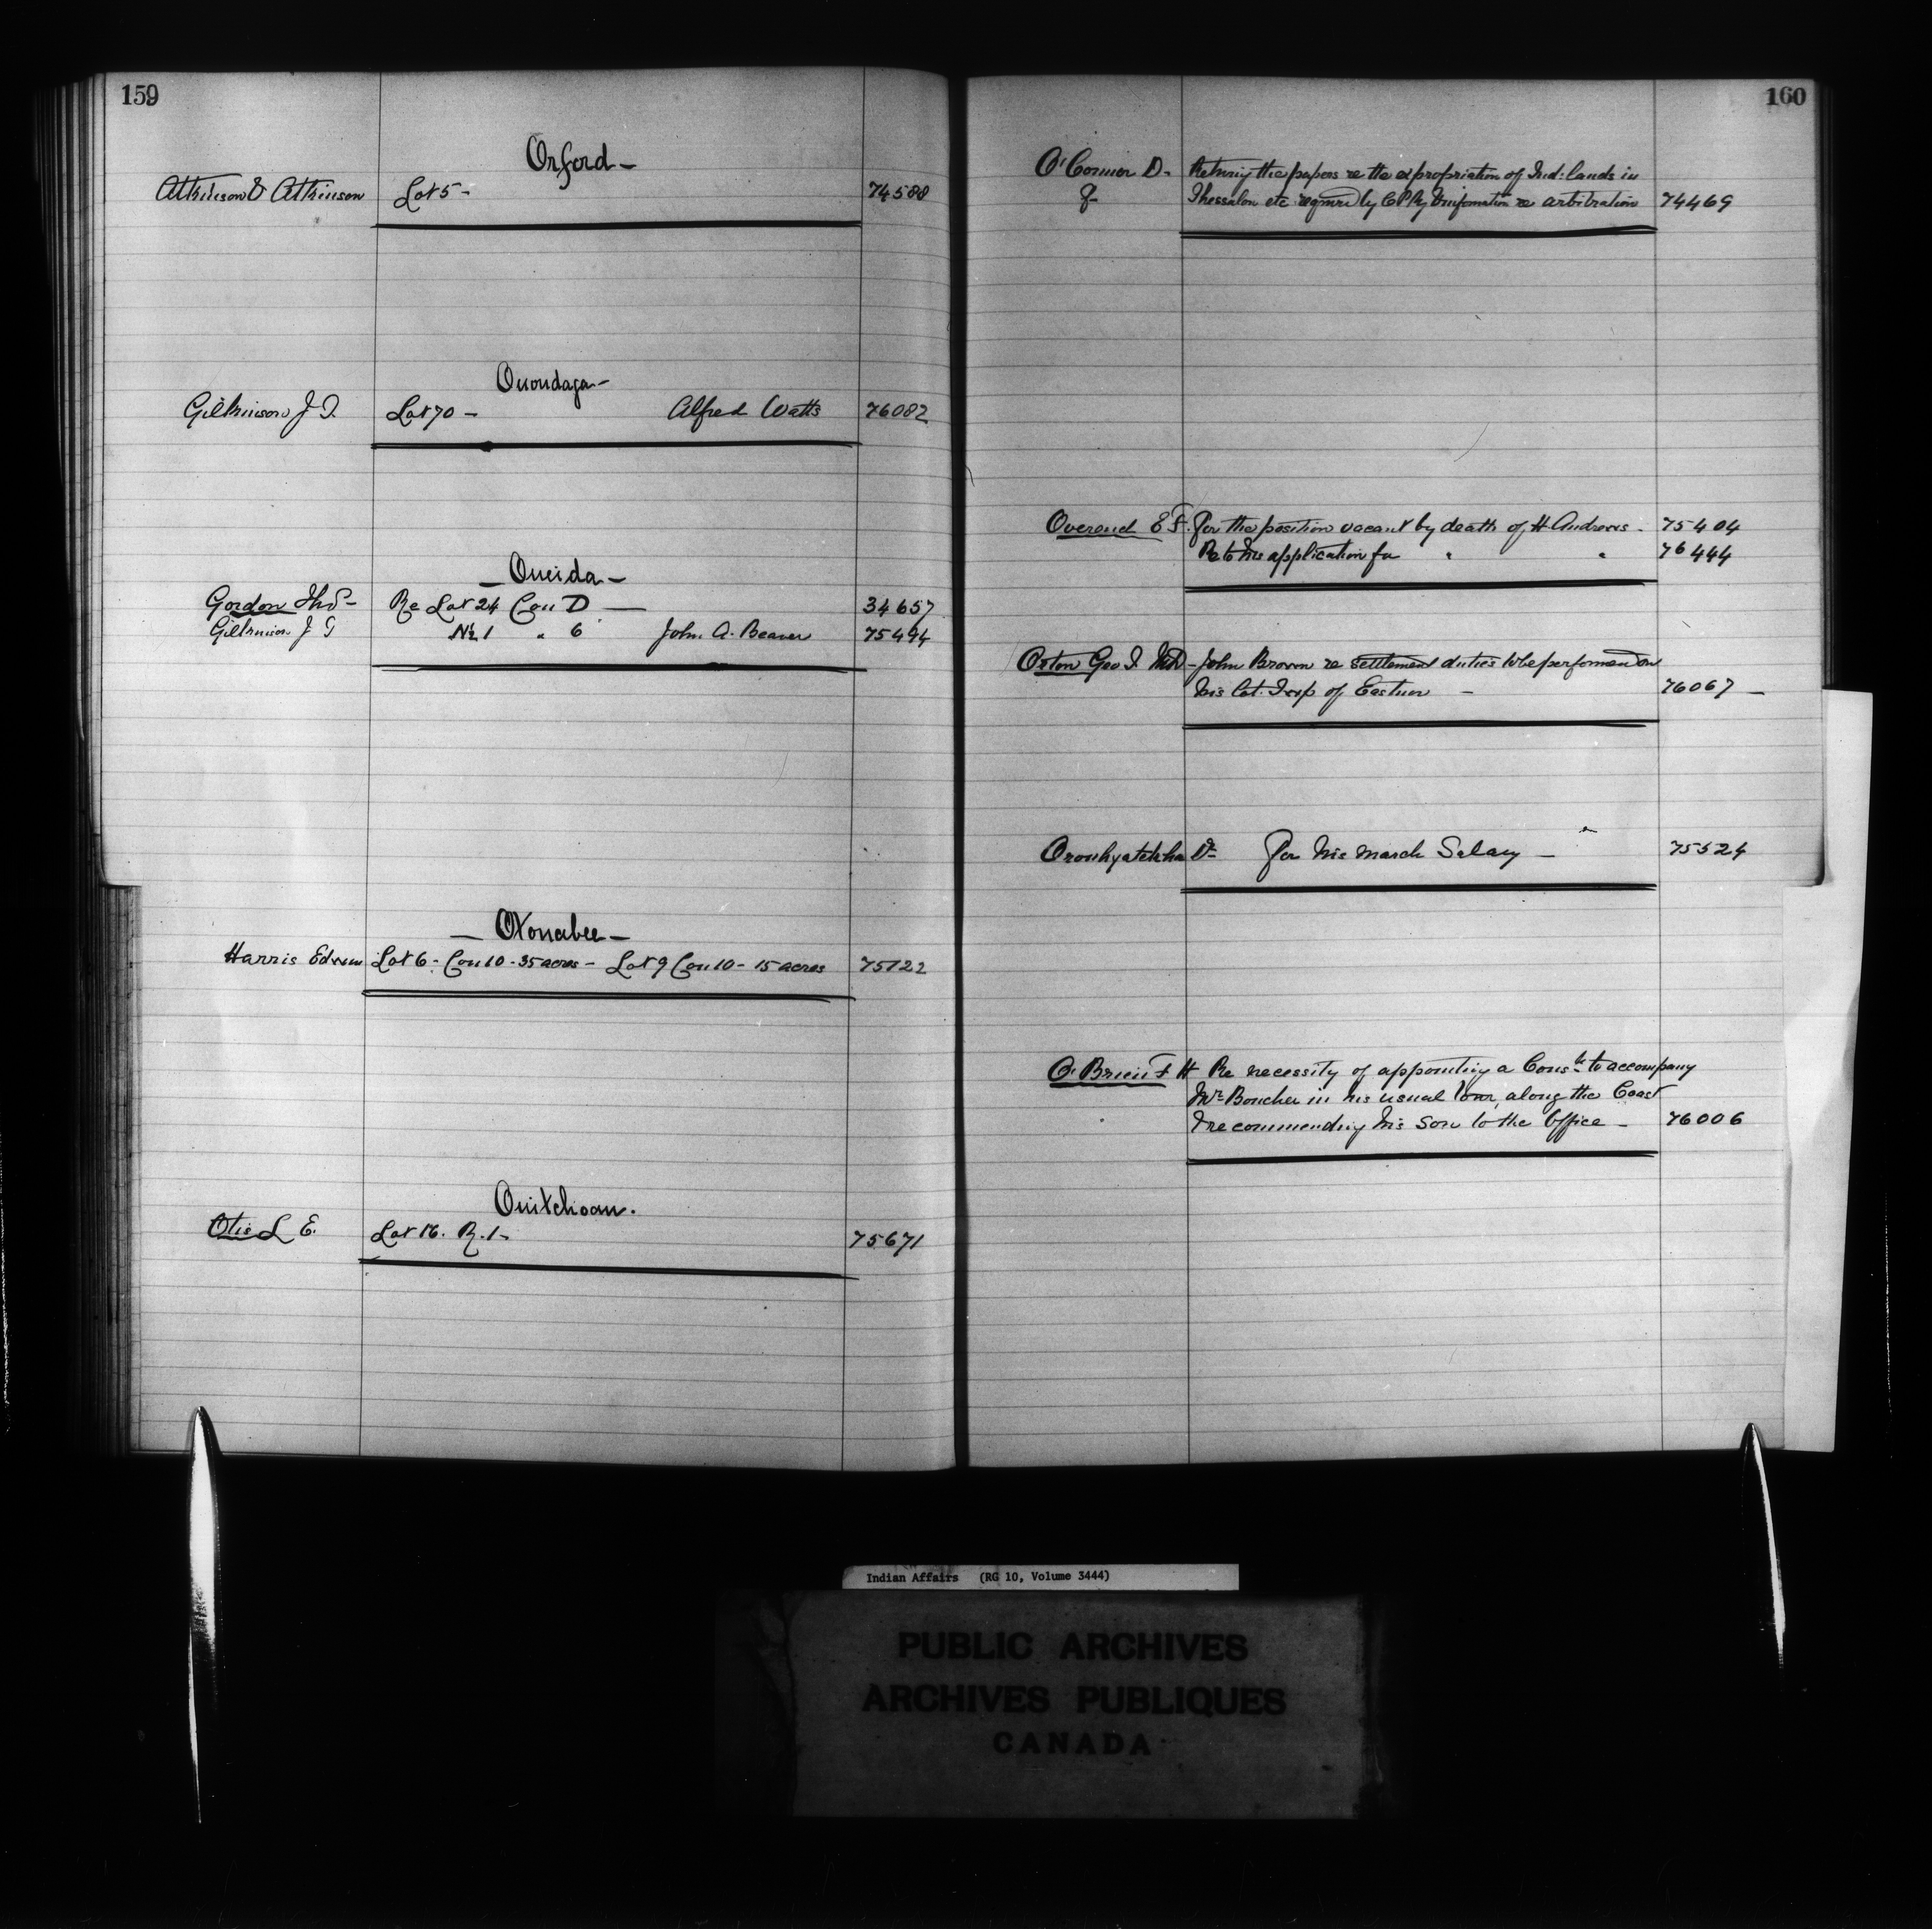 159
Orford —
Atkinson & Atkinson Lot 5 - 74588
Onondaga —
Gilkinson J. T. Lot 70 — Alfred Watts 76082
— Oneida —
Gordon Thos — Re Lot 24 Con D — 34657
Gilkinson J T N½ 1 " 6 John A. Beaver 75494
— Otonabee —
Harris Edwin Lot 6 - Con 10 - 35 acres — Lot 9 Con 10 - 15 acres 75122
Ouitchoan.
Otis L E. Lot 16. R. 1 - 75671
160
O'Connor D. Returng the papers re the expropriation of Ind: lands in
Thessalon etc required by C P Ry & information re arbitration 74469
Overend E F. For the position vacant by death of H Andrews - 75404
Re to his application for " " 76444
Orton Geo T. MD - John Brown re settlement duties to be performed on
his lot. Twp of Eastnor — 76067 —
Oronhyatekha Dr For his March Salary — 75524
O'Brien F H Re necessity of appointing a Consle to accompany
Mr Boucher in his usual tour, along the Coast
& recommending his son to the Office — 76006
Indian Affairs (RG 10, Volume 3444)
PUBLIC ARCHIVES
ARCHIVES PUBLIQUES
CANADA